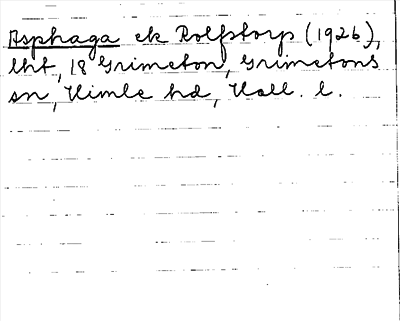 Asphaga ek Rolfstorp (1926),
lht, 18 Grimeton, Grimetons
sn, Himle hd, Hall. l.